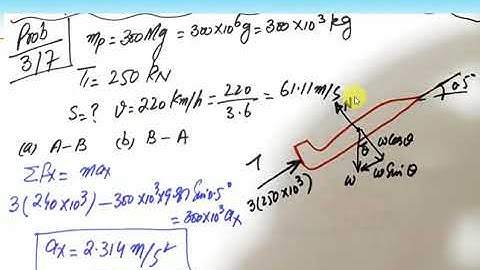 Prob 3/7
mp = 300Mg = 300×10⁶g = 300×10³kg
T₁ = 250 KN
S=? v = 220 Km/h = 220/3.6 = 61.11 m/s
(a) A-B (b) B-A
ΣFx = max
3(240×10³) - 300×10³×9.81 Sin0.5°
= 300×10³ax
ax = 2.314 m/s²
N
0.5°
θ
wcosθ
wSinθ
w
T
3(250×10³)